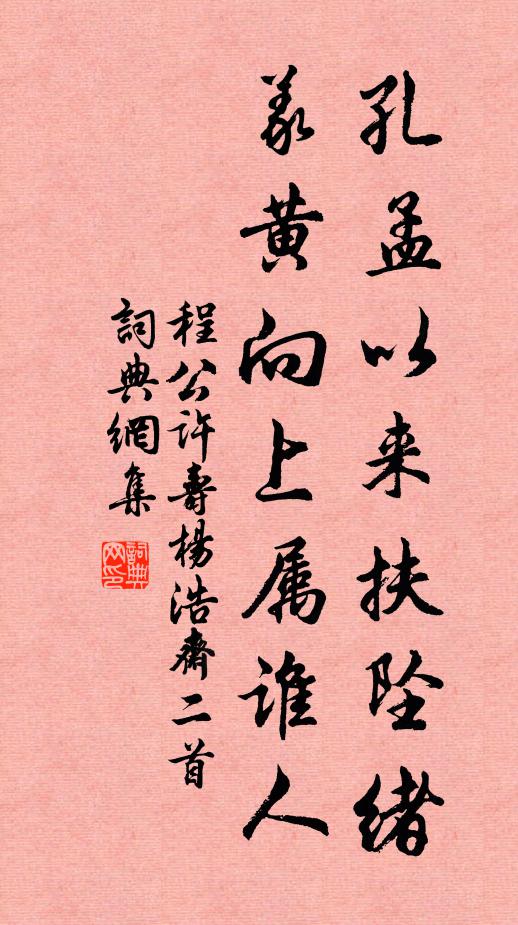 孔孟以来扶坠绪
羲黄向上属谁人
程公許壽楊浩齋二首
詞典網集
詞典网印